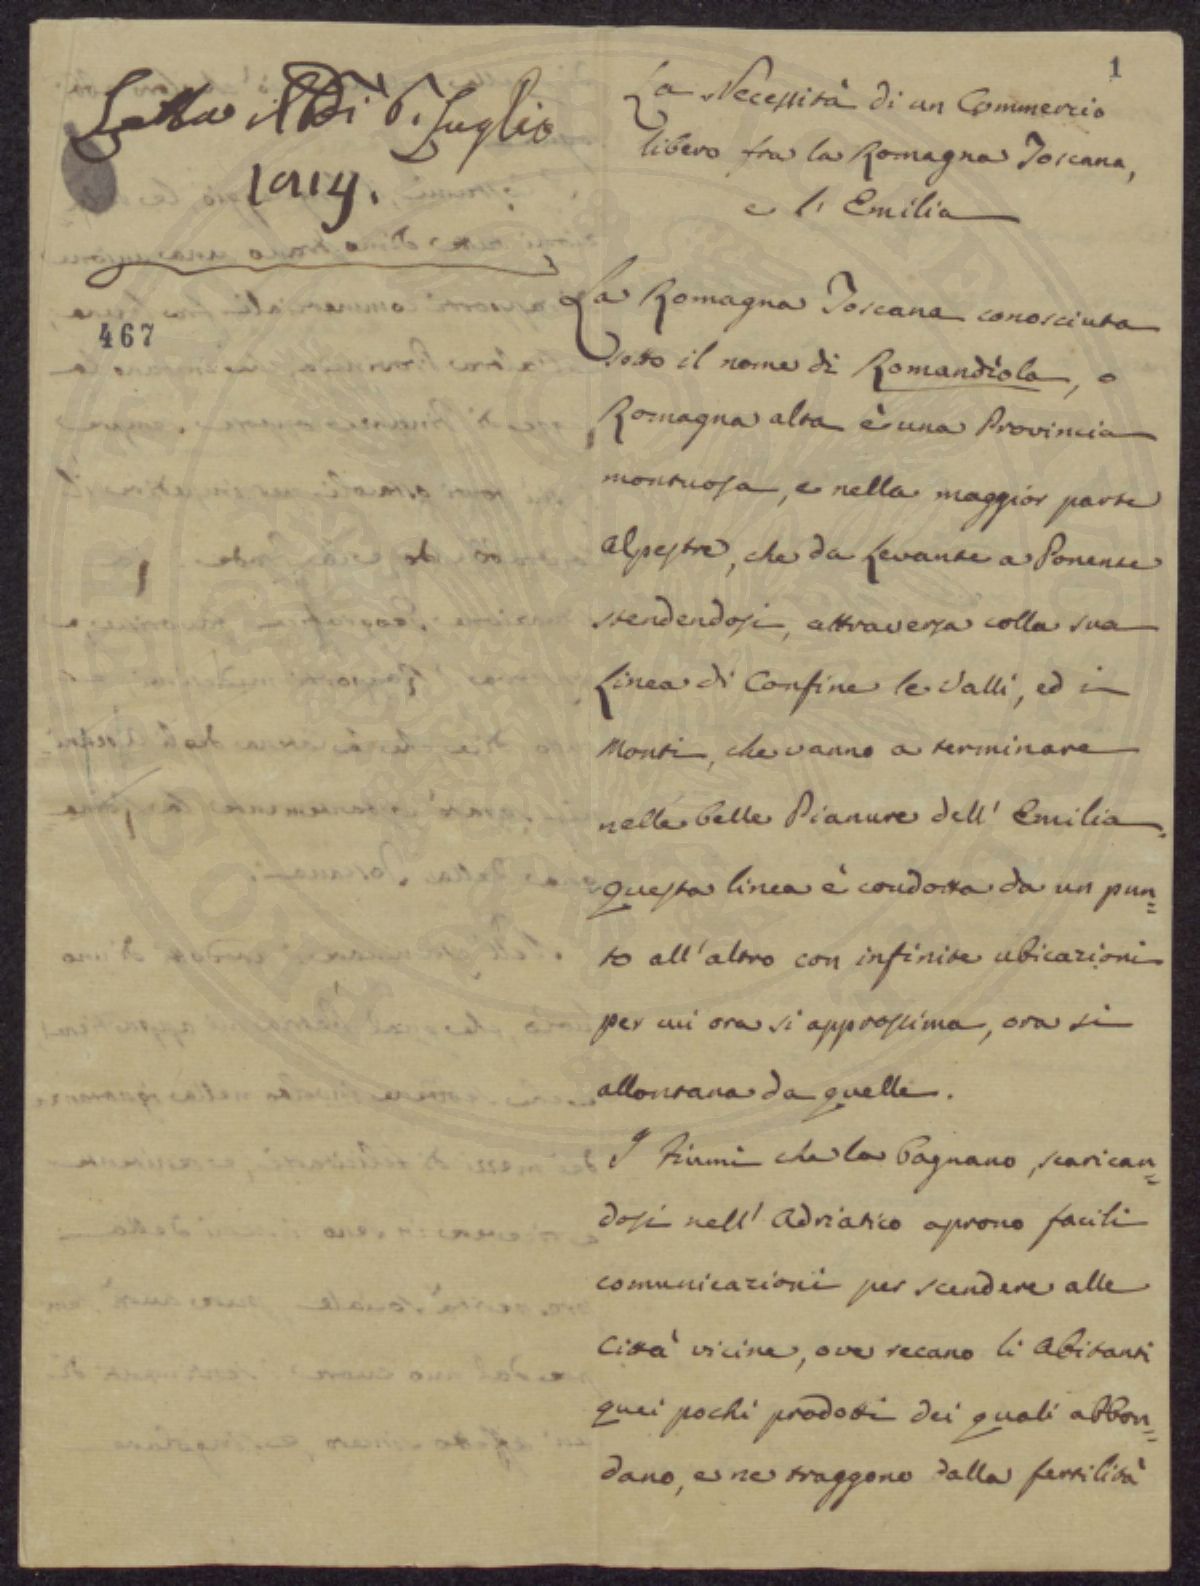 Letta il Dì 6. Luglio
1814.
467
1
La Necessità di un Commercio
libero fra la Romagna Toscana,
e l' Emilia
La Romagna Toscana conosciuta
sotto il nome di Romandiola, o
Romagna alta è una Provincia
montuosa, e nella maggior parte
alpestre, che da Levante a Ponente
stendendosi, attraversa colla sua
Linea di Confine le Valli, ed i
Monti, che vanno a terminare
nelle belle Pianure dell' Emilia.
questa linea è condotta da un pun=
to all' altro con infinite ubicazioni
per cui ora si approssima, ora si
allontana da quelle.
I Fiumi che la bagnano, scarican=
dosi nell' Adriatico aprono facili
comunicazioni per scendere alle
Città vicine, ove recano li abitanti
quei pochi prodotti dei quali abbon=
dano, e ne traggono dalla fertilità